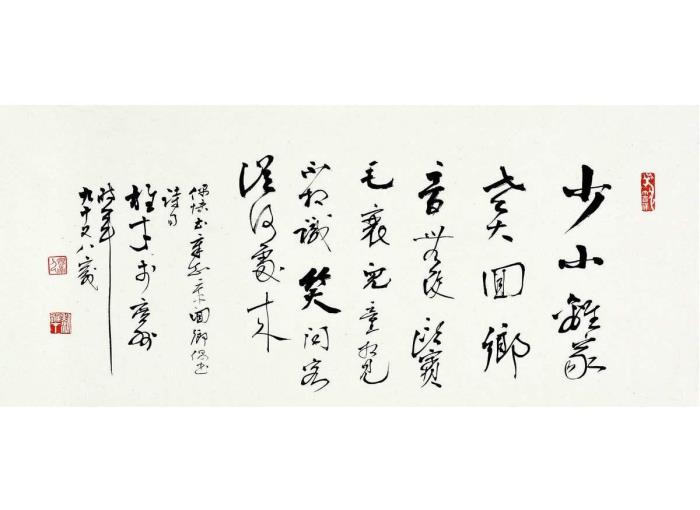 少小離家
老大回鄉
音無改鬢
毛衰兒童相見
不相識笑問客
從何處來
回鄉偶書
詩句
雄才於廣州
時年
九十又八歲